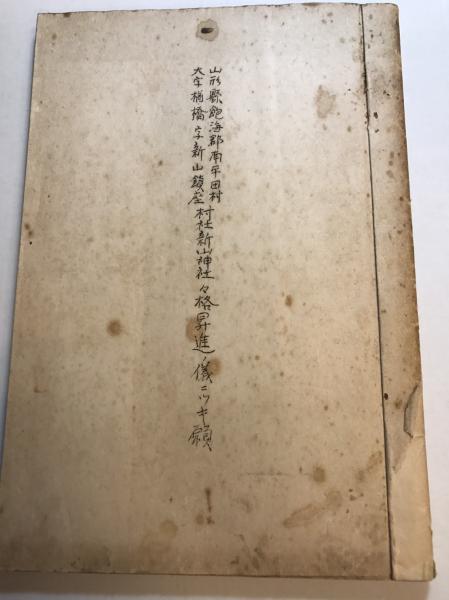 山形縣飽海郡南平田村
大字楢橋字新山鎮座
村社新山神社々格昇進ノ儀ニツキ願